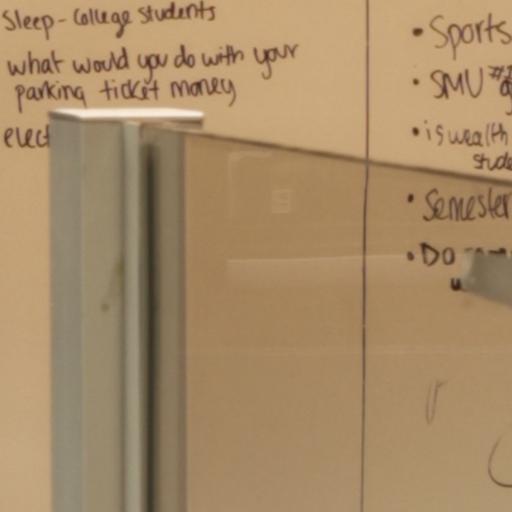 Sleep - College students
what would you do with your
parking ticket money
elect
• Sports
• SMU #1
• is wealth
stude
• Semester
• Do